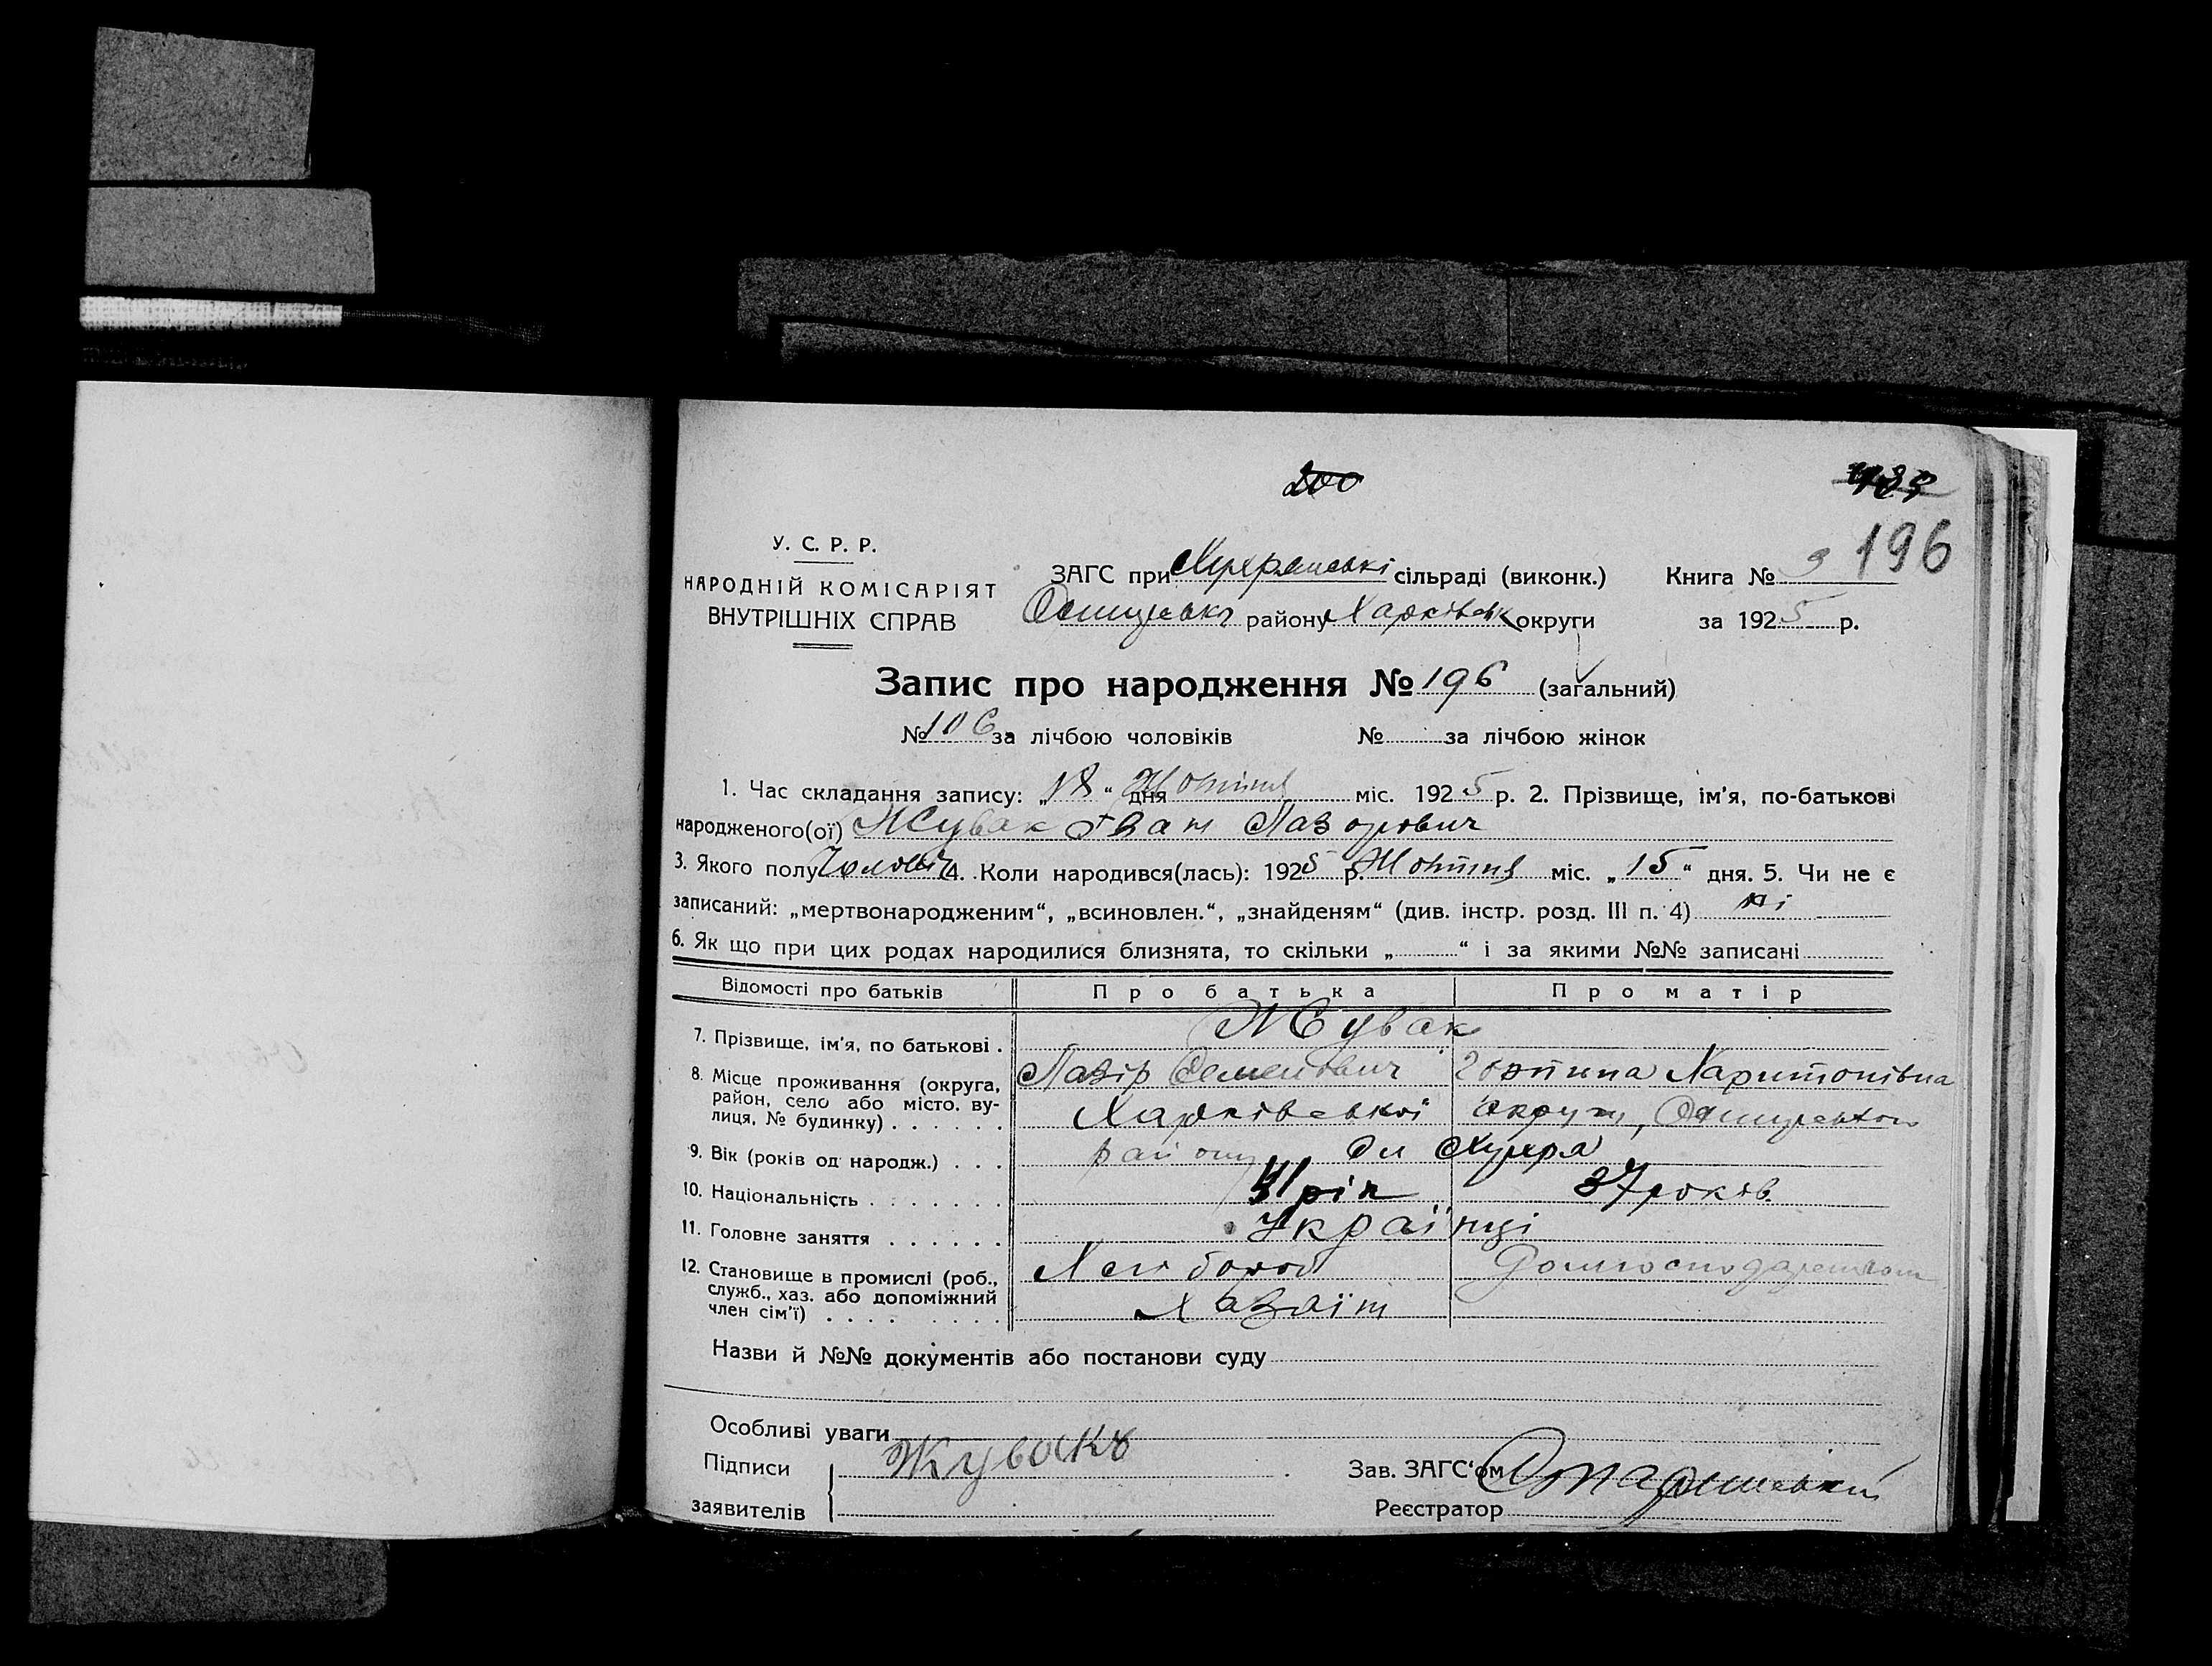 200
196
У. С. Р. Р.
НАРОДНІЙ КОМІСАРІЯТ
ВНУТРІШНІХ СПРАВ
ЗАГС при сільраді (виконк.) Книга № 9
району Харківськ округи за 1925 р.
Запис про народження № 196 (загальний)
№ 106 за лічбою чоловіків № за лічбою жінок
1. Час складання запису: „18“ дня Жовтня міс. 1925 р. 2. Прізвище, ім'я, по-батькові
народженого(ої) Жувак Іван Лазорович
3. Якого полу Чоловіч 4. Коли народився(лась): 1925 р. Жовтня міс. „15“ дня. 5. Чи не є
записаний: „мертвонародженим“, „всиновлен.“, „знайденям“ (див. інстр. розд. III п. 4) ні
6. Як що при цих родах народилися близнята, то скільки „ “ і за якими №№ записані
Відомості про батьків Про батька Про матір
7. Прізвище, ім'я, по батькові . Жувак
Лазір Семенович Горпина Харитонівна
8. Місце проживання (округа, район, село або місто, вулиця, № будинку) . . . . . . Харківської округи,
9. Вік (років од народж.) . . . району
10. Національність . . . . . . . 41 рік 37 років
11. Головне заняття . . . . . . Українці
12. Становище в промислі (роб., служб., хаз. або допоміжний член сім'ї) . . . . . . . . Хлібороб
Хазяїн
Назви й №№ документів або постанови суду
Особливі уваги
Підписи Жувакъ Зав. ЗАГС'ом
заявителів Реєстратор